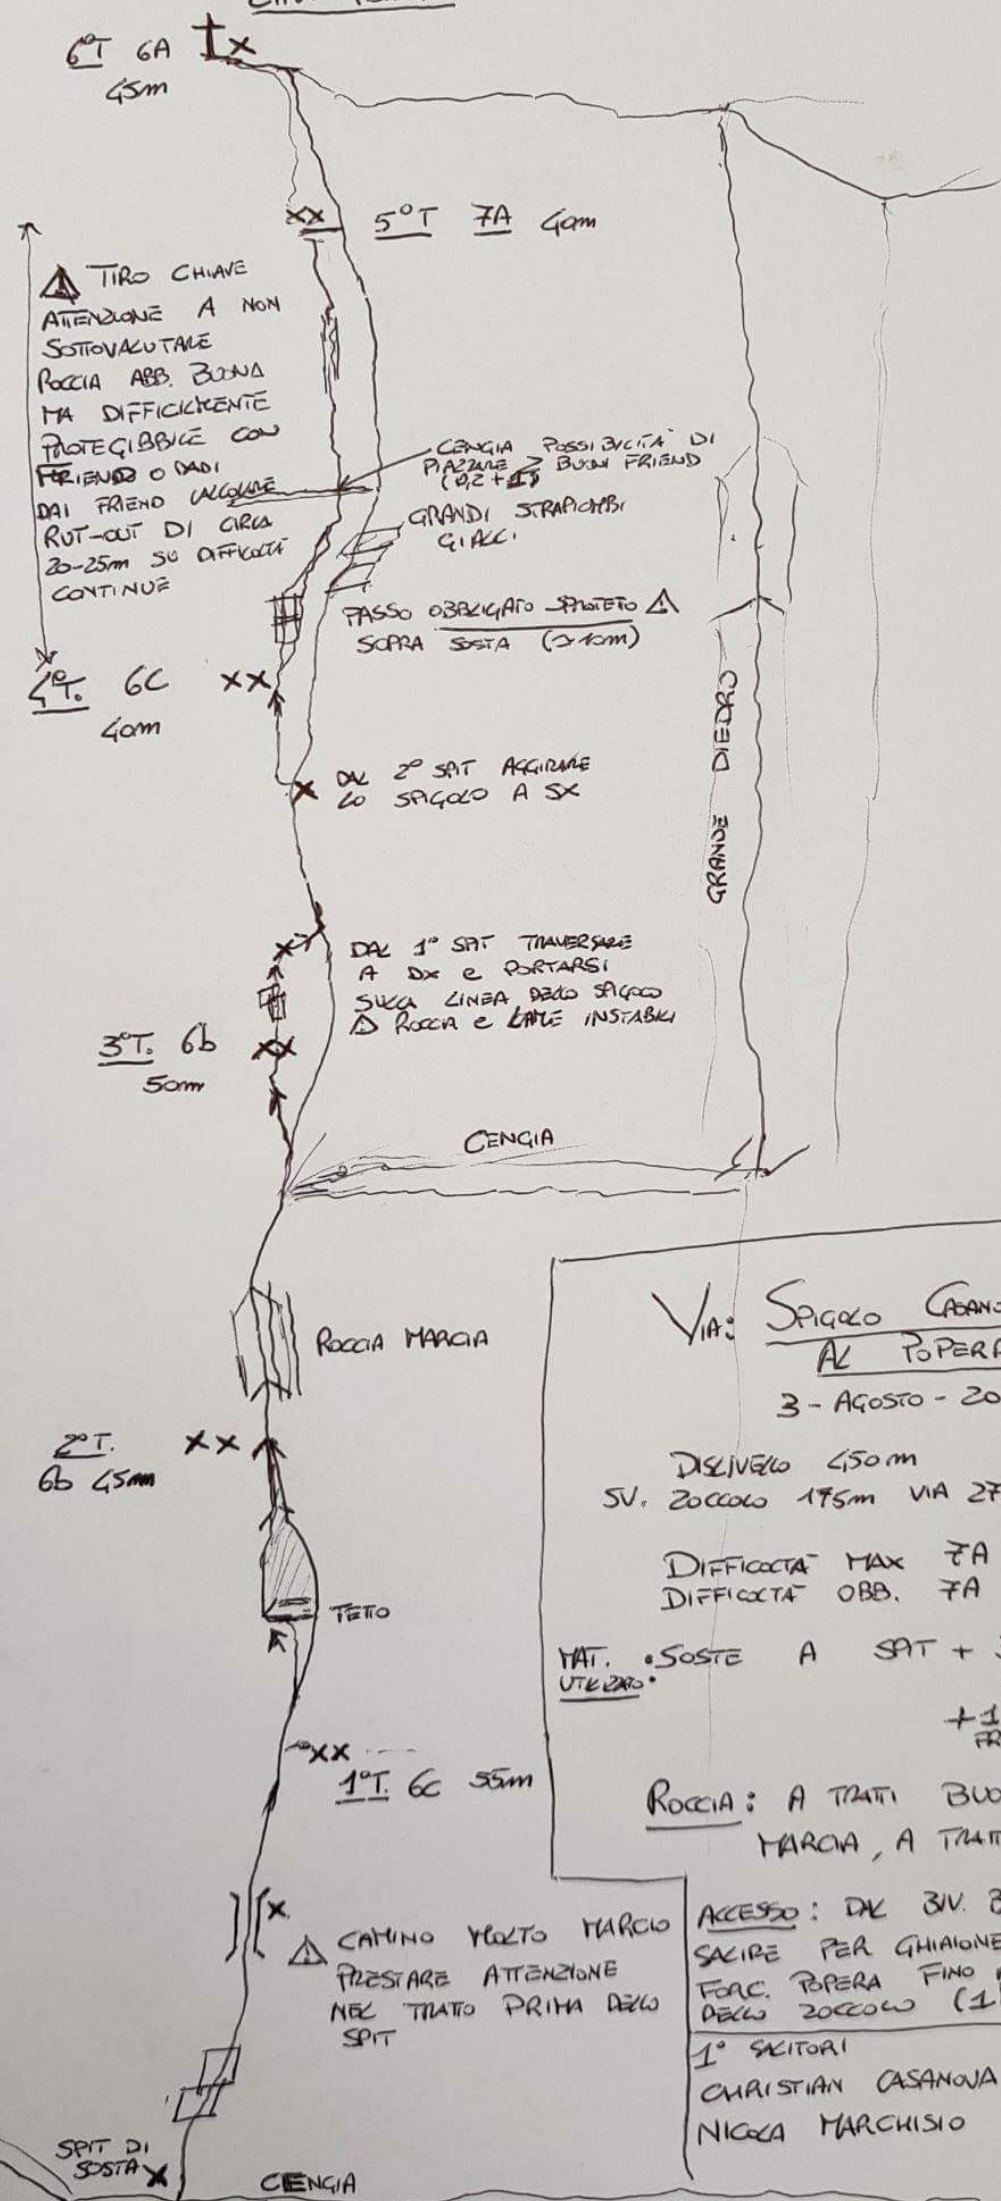 6°T 6A
45m
5°T 7A 40m
⚠ TIRO CHIAVE
ATTENZIONE A NON
SOTTOVALUTARE
ROCCIA ABB. BUONA
MA DIFFICILMENTE
PROTEGIBBILE CON
FRIENDS O DADI
DAI FRIEND CALCOLARE
RUT-OUT DI CIRCA
20-25m SU DIFFICOLTÀ
CONTINUE
CENGIA POSSIBILITÀ DI
PIAZZARE 2 BUONI FRIEND
(0,2 + 1)
GRANDI STRAPIOMBI
GIALLI
PASSO OBBLIGATO SPROTETO ⚠
SOPRA SOSTA (>10m)
4°T. 6C XX
40m
DAL 2° SPIT AGGIRARE
LO SPIGOLO A SX
GRANDE DIEDRO
DAL 1° SPIT TRAVERSARE
A DX e PORTARSI
SULLA LINEA DELLO SPIGOLO
⚠ ROCCIA e LAME INSTABILI
3°T. 6b XX
50m
CENGIA
ROCCIA MARCIA
2°T. XX
6b 45m
TETTO
XX
1°T. 6C 55m
X
⚠ CAMINO MOLTO MARCIO
PRESTARE ATTENZIONE
NEL TRATTO PRIMA DELLO
SPIT
SPIT DI
SOSTA X
CENGIA
VIA: SPIGOLO CASANO
AL POPERA
3 - AGOSTO - 20
DISLIVELLO 450m
SV. ZOCCOLO 175m VIA 27
DIFFICOLTÀ MAX 7A
DIFFICOLTÀ OBB. 7A
MAT. • SOSTE A SPIT +
UTILIZZATO •
+1
FR
ROCCIA: A TRATTI BUO
MARCIA, A TRATT
ACCESSO: DAL BIV. B
SALIRE PER GHIAIONE
FORC. POPERA FINO
DELLO ZOCCOLO (1
1° SALITORI
CHRISTIAN CASANOVA
NICOLA MARCHISIO